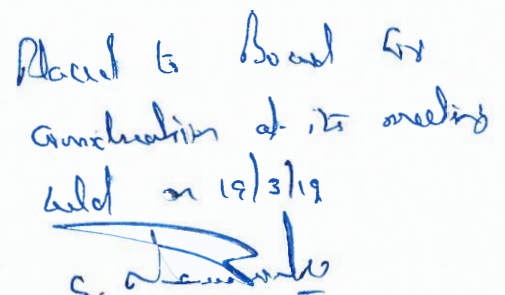 Placed to Board for
consideration at its meeting
held on 19/3/19